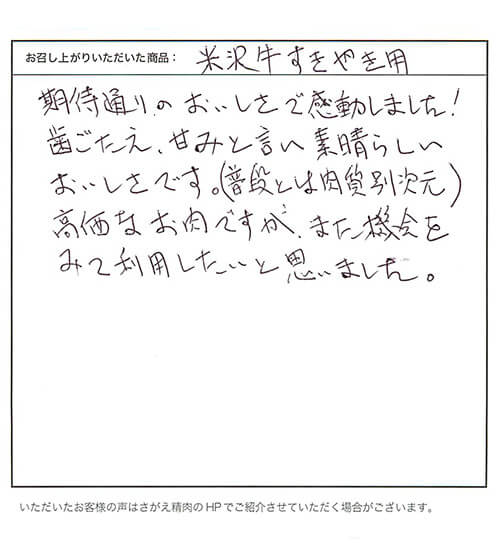 お召し上がりいただいた商品： 米沢牛すきやき用
期待通りのおいしさで感動しました！
歯ごたえ、甘みと言い素晴らしい
おいしさです。(普段とは肉質別次元)
高価なお肉ですが、また機会を
みて利用したいと思いました。
いただいたお客様の声はさがえ精肉のHPでご紹介させていただく場合がございます。